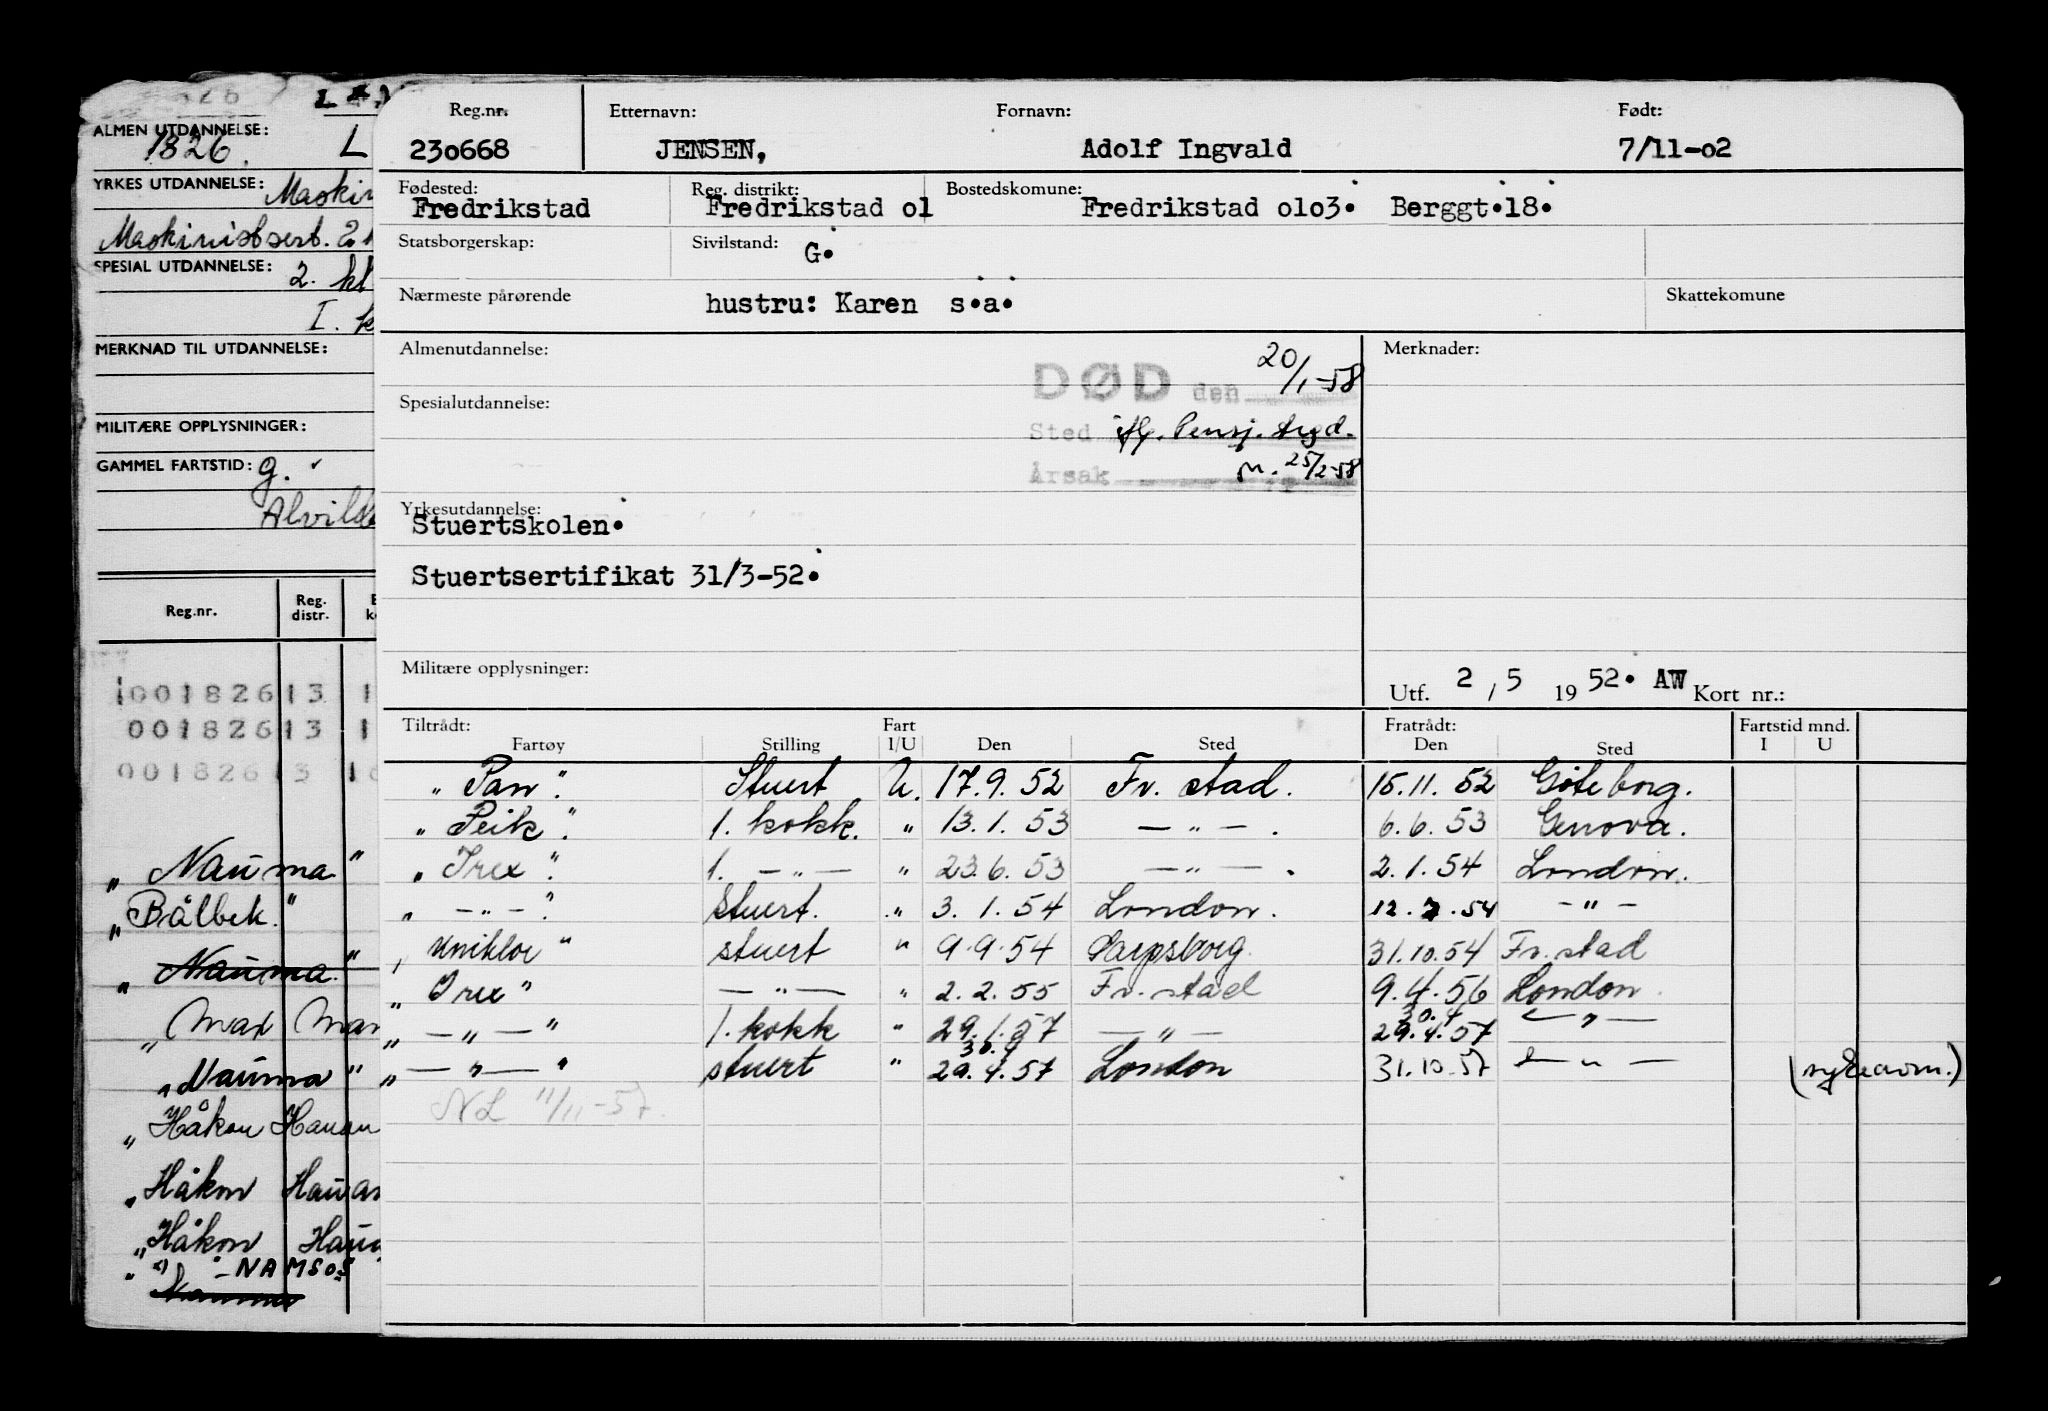 ALMEN UTDANNELSE:
1826. L
YRKES UTDANNELSE:
SPESIAL UTDANNELSE: 2. kl
I. k
MERKNAD TIL UTDANNELSE:
MILITÆRE OPPLYSNINGER:
GAMMEL FARTSTID: g.
Reg.nr. Reg. distr.
00182613 1
00182613 1
00182613 1
„ Nauma "
„ Bålbek. "
„ Nauma. "
„ Max Man
„ Nauma "
„ Håkon Hauan
„ Håkon Hauan
„ Håkon Haua
„ " - NAMSOS
Nauma
Reg.nr. Etternavn: Fornavn: Født:
230668 JENSEN, Adolf Ingvald 7/11-02
Fødested: Reg. distrikt: Bostedskomune:
Fredrikstad Fredrikstad 01 Fredrikstad 0103. Berggt.18.
Statsborgerskap: Sivilstand: G.
Nærmeste pårørende hustru: Karen s.a. Skattekomune
Almenutdannelse: Merknader:
DØD den 20/1-58
Spesialutdannelse:
Sted ifg. Pensj. trygd.
Årsak m. 25/2-58
Yrkesutdannelse:
Stuertskolen.
Stuertsertifikat 31/3-52.
Militære opplysninger:
Utf. 2 / 5 19 52. AW Kort nr.:
Tiltrådt: Fart Fratrådt: Fartstid mnd.
Fartøy Stilling I/U Den Sted Den Sted I U
„ Pan ". Stuert U. 17.9.52 Fr. stad. 15.11.52 Göteborg.
„ Peik ". 1. kokk. " 13.1.53 — " — . 6.6.53 Genova.
„ Trex ". 1. — " — " 23.6.53 — " — . 2.1.54 London.
„ — " — ". Stuert. " 3.1.54 London. 12.7.54 — " —
„ stuert " 9.9.54 Sarpsborg. 31.10.54 Fr. stad
„ Trex " — " — " 2.2.55 Fr. stad 9.4.56 London.
„ — " — " 1. kokk " 29.1.57 — " — 30.4 29.4.57 — " —
„ — " — " stuert " 30.4 29.4.57 London 31.10.57 — " — (sykeavm.)
NL 11/11-57.